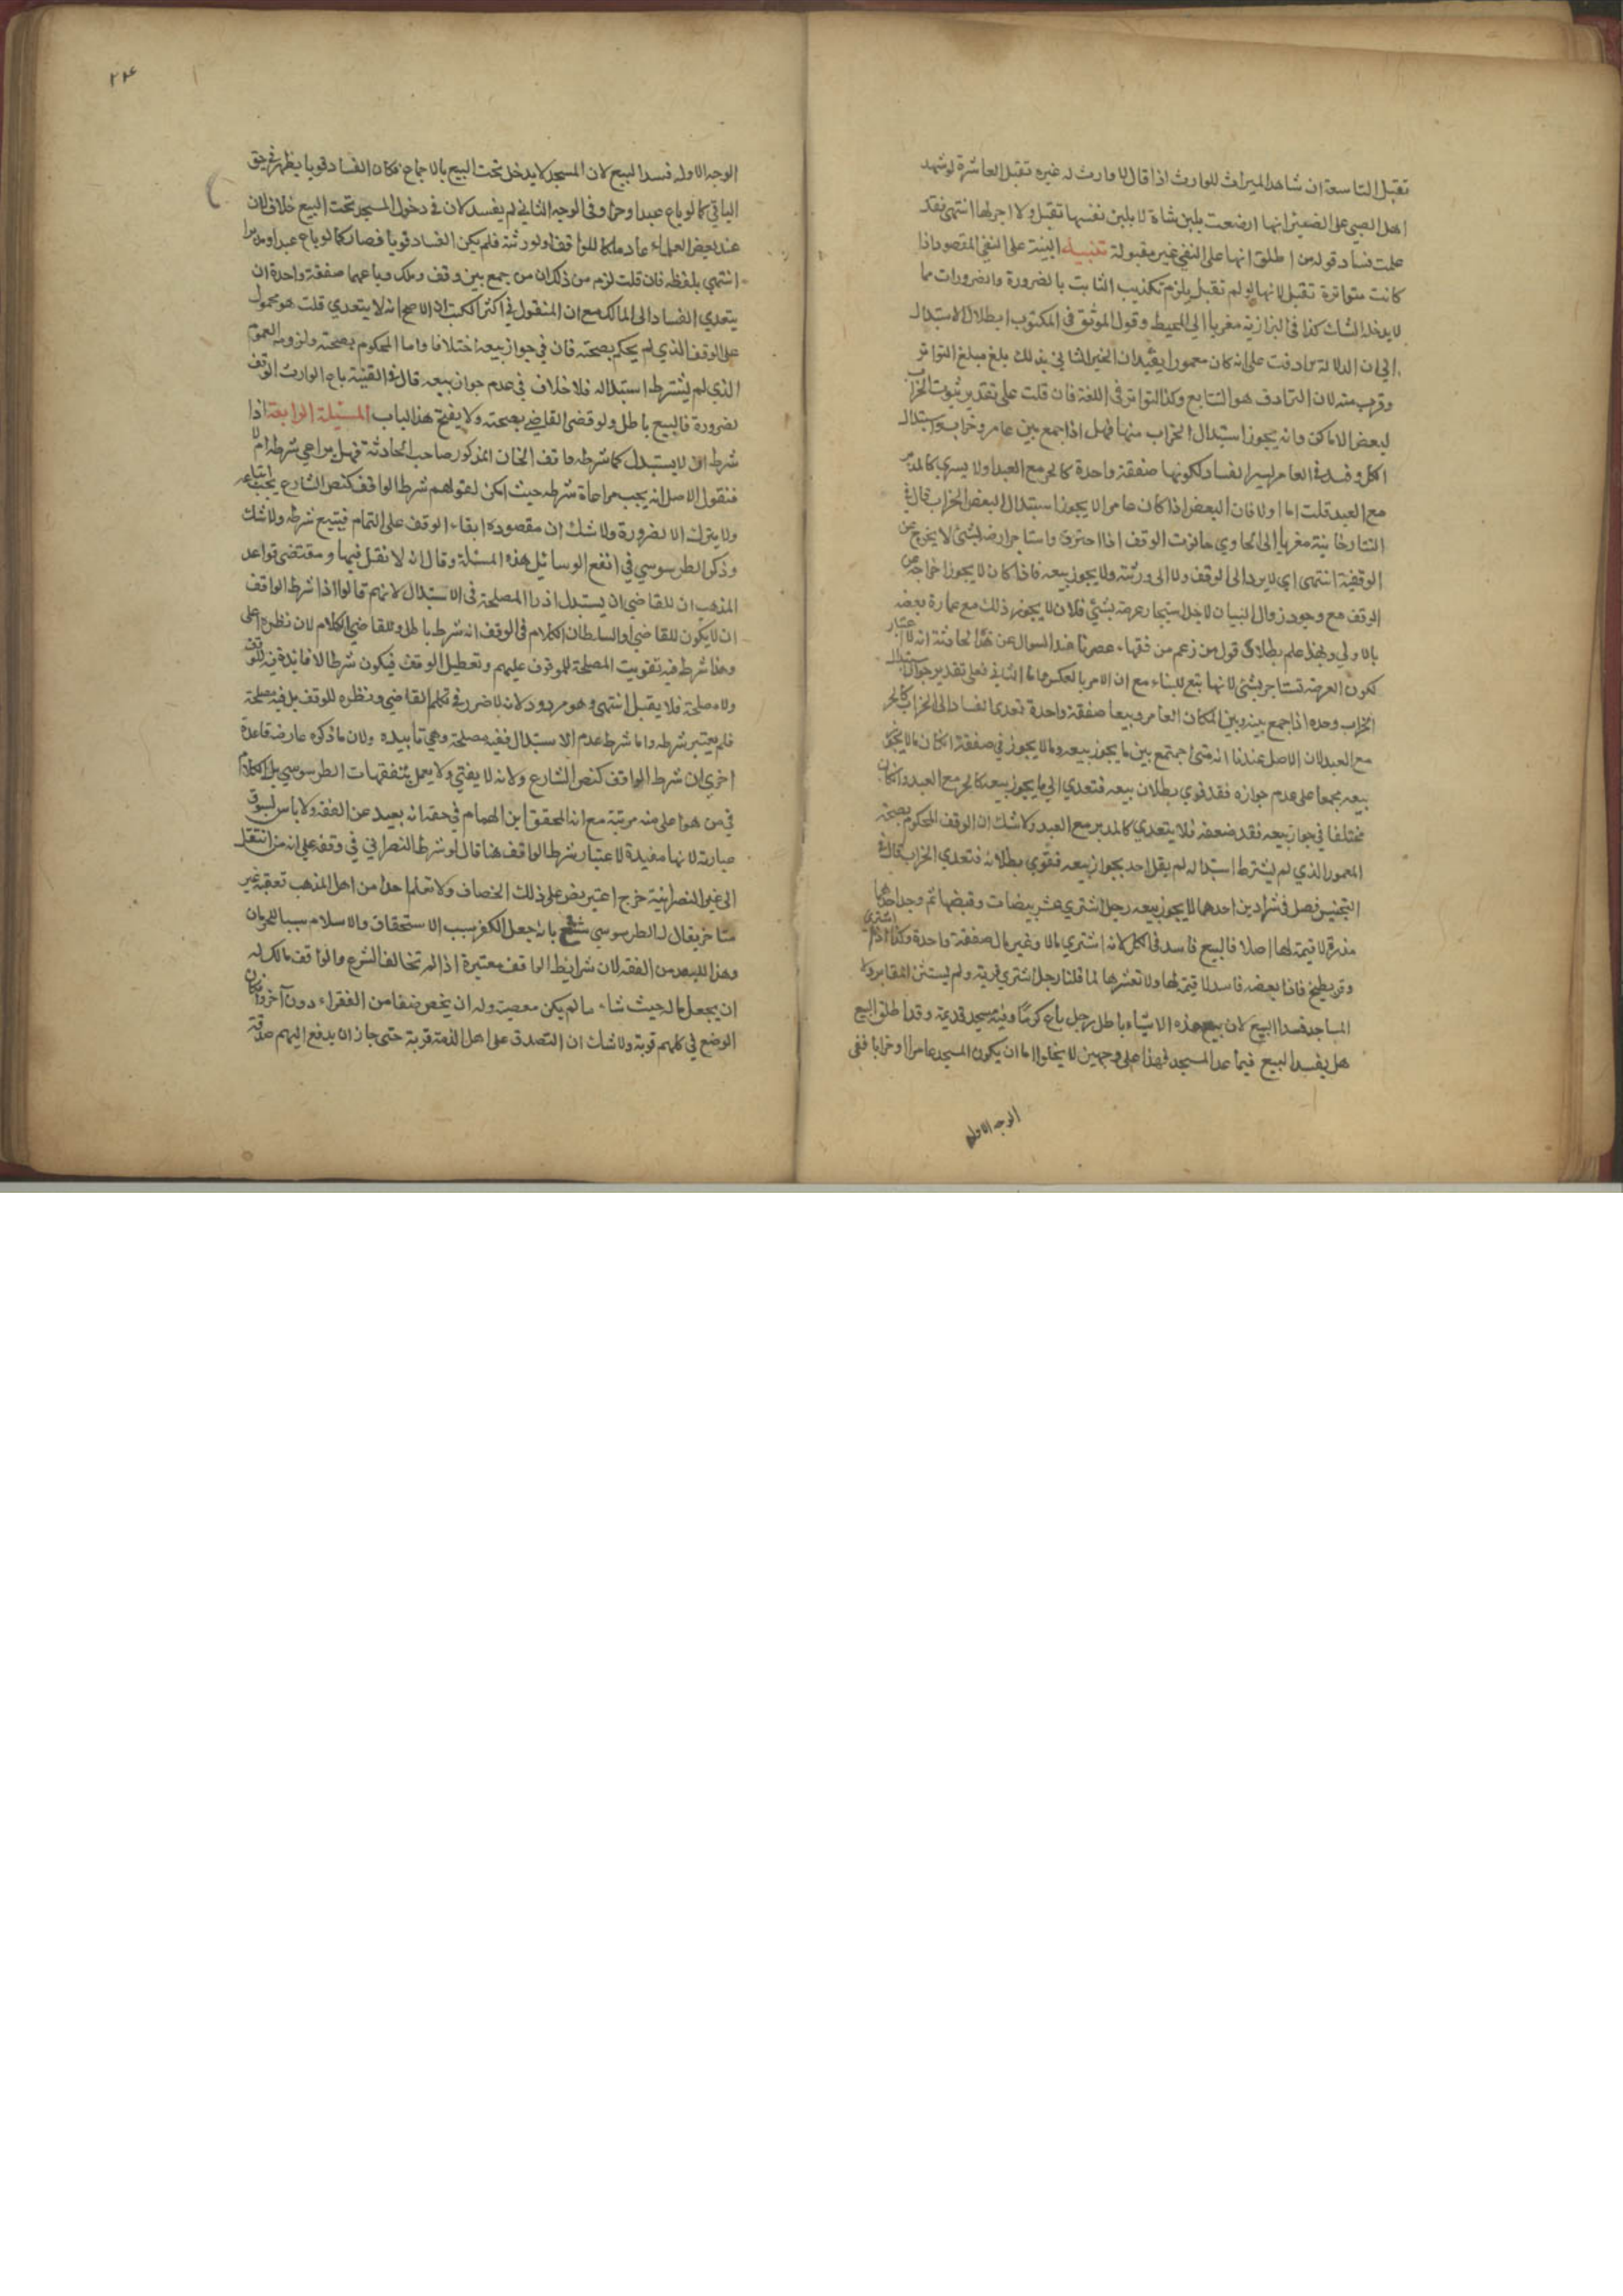 تقبل التاسعة ان شاهدا لميراث للوارث اذا قال لا وارث له غيره تقبل العاشرة لو شهد
اهل الصبي على الضئر انها ارضعت بلبن شاة لا بلبن نفسها تقبل ولا اجر لها انتهى فقد
علمت فساد قول من اطلق انها على النفي غير مقبولة تنبيه البينة على النفي المقصود اذا
كانت متواترة تقبل لانها لو لم تقبل يلزم تكذيب الثابت بالضرورة والضروريات مما
لا يدخله الشك كذا في البزازية مغربا الى المحيط وقول الموثق في المكتوب ابطلال الاستبدال
الى ان الدلالة ترادفت على انه كان معمورا يفيد ان الخبر الثاني بذلك بلغ مبلغ التواتر
وقريب منه لان الترادف هو التتابع وكذا التواتر في اللغة فان قلت على تقدير ثبوت الخراب
لبعض الاماكن وانه يجوز استبدال الخراب منها فهل اذا جمع بين عامر وخراب واستبدال
الكل وفسد في العامر ايسر الفساد لكونها صفقة واحدة كالحر مع العبد اولا يسري كالمدبر
مع العبد قلت اما اولا فان البعض اذا كان عامرا لا يجوز استبدال البعض الخراب قال في
التتارخانية مغربا الى الحاوي حانوت الوقف اذا احترق واستاجر ارضه بشئ لا يخرج عن
الوقفية انتهى اي لا يرد الى الوقف ولا الى ورثته ولا يجوز بيعه فاذا كان لا يجوز اخراجه عن
الوقف مع وجود زوال البنيان لاجل استيجار عرصة بشئ فلان لا يجوز ذلك مع عمارة بعضه
بالاولى وبهذا علم بطلان قول من زعم من فقهاء عصرنا عند السوال عن هذا الحادثة انه لا اعتبار
لكون العرصة تستاجر بشئ لانها تبع للبناء مع ان الامر بالعكس واما الثاني فعلى تقدير جواز استبدال
الخراب وحده اذا جمع بينه وبين المكان العامر وبيعا صفقة واحدة تعدى الفساد الى الخراب كالحر
مع العبد لان الاصل عندنا انه متى اجتمع بين ما يجوز بيعه وما لا يجوز في صفقة ان كان ما لا يجوز
بيعه مجمعا على عدم جوازه فقد قوي بطلان بيعه فتعدى الى ما يجوز بيعه كالحر مع العبد وان كان
مختلفا في جواز بيعه فقد ضعفه فلا يتعدي كالمدبر مع العبد ولا شك ان الوقف المحكوم بصحته
المعمور الذي لم يشترط استبداله لم يقل احد بجواز بيعه فقوي بطلانه فتعدى الخراب قال في
التجنيس فصل في شراء شيئين احدهما لا يجوز بيعه رجل اشتري عشر بيضات وقبضها ثم وجد احداهما
مذرة لا قيمة لها اصلا فالبيع فاسد في الكل لانه اشتري مالا وغير مال صفقة واحدة وكذا اذا اشتري
وقر بطيخ فاذا بعضه فاسد لا قيمة لها ولا تعشرها لما قلنا رجل اشتري قرية ولم يستثن المقابر ولا
المساجد فسدا البيع لان بيع هذه الاشياء باطل رجل باع كرما وفيه مسجد قديمة وقد اطلق البيع
هل يفسد البيع فيما عدا المسجد فهذا على وجهين لا يخلوا اما ان يكون المسجد عامرا او خرابا ففي
الوجه الاول
٢٢٤
الوجه الاول فسد البيع لان المسجد لا يدخل تحت البيع بالاجماع فكان الفساد قويا يظهر في حق
الباقي كما لو باع عبدا وحرا وفي الوجه الثاني لم يفسد لان في دخول المسجد تحت البيع خلافا لان
عند بعض العلماء عاد ملكا للواقف او لورثته فلم يكن الفساد قويا فصار كما لو باع عبدا ومدبرا
انتهى بلفظه فان قلت لزم من ذلك ان من جمع بين وقف وملك وباعهما صفقة واحدة ان
يتعدي الفساد الى المالك مع ان المنقول في اكثر الكتب ان الاصح انه لا يتعدي قلت هو محمول
على الوقف الذي لم يحكم بصحته فان في جواز بيعه اختلافا واما المحكوم بصحته ولزومه العموم
الذي لم يشترط استبداله فلا خلاف في عدم جواز بيعه قال في القنية باع الوارث الوقف
لضرورة فالبيع باطل ولو قضى القاضي بصحته ولا يفتح هذا الباب المسئلة الرابعة اذا
شرط ان لا يستبدل كما شرطه واقف الخان المذكور صاحب الحادثة فهل يراعي شرطه ام لا
فنقول الاصل انه يجب مراعاة شرطه حيث امكن لقولهم شرط الواقف كنص الشارع يجب اتباعه
ولا يترك الا لضرورة ولا شك ان مقصوده ابقاء الوقف على التمام فيتبع شرطه ولا شك
وذكر الطرسوسي في انفع الوسائل هذه المسئلة وقال انه لا نقل فيها ومقتضى قواعد
المذهب ان للقاضي ان يستبدل اذ را المصلحة في الاستبدال لانهم قالوا اذا شرط الواقف
ان لا يكون للقاضي او السلطان الكلام في الوقف انه شرط باطل وللقاضي الكلام لان نظره اعلى
وهذا شرط فيه تفويت المصلحة للموقوف عليهم وتعطيل الوقف فيكون شرطا لا فائدة فيه للوقف
ولا مصلحة فلا يقبل انتهى وهو مردود لانه لا ضرر في تكلم القاضي ونظره للوقف بل فيه مصلحة
فلم يعتبر شرطه واما شرط عدم الاستبدال ففيه مصلحة وهي تابيده ولان ما ذكره عارضه قاعدة
اخرى ان شرط الواقف كنص الشارع ولانه لا يفتي ولا يعمل بتفقهات الطرسوسي بل الكلام
في من هو اعلى منه مرتبة مع ان المحقق ابن الهمام في حقه انه بعيد عن الفقه ولا باس بسوق
عبارته لانها مفيدة لاعتبار شرط الواقف هنا قال لو شرط النصراني في وقفه على انه من انتقل
الى غير النصرانية خرج اعتبر نص على ذلك الخصاف ولا نعلم احدا من اهل المذهب تعقبه غير
متاخر يقال له الطرسوسي شنع بانه جعل الكفر سبب الاستحقاق والاسلام سببا للحرمان
وهذا للبعد من الفقه لان شرايط الواقف معتبرة اذا لم تخالف الشرع والواقف مالك له
ان يجعل ماله حيث شاء ما لم يكن معصية وله ان يخص صنفا من الفقراء دون آخر وان كان
الوضع في كلهم قربة ولا شك ان التصدق على اهل الذمة قربة حتى جاز ان يدفع اليهم صدقة